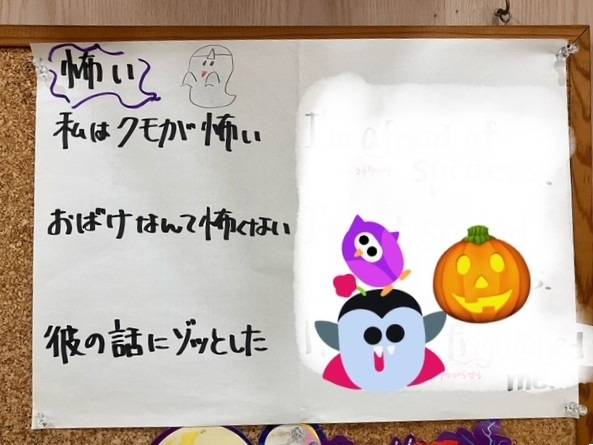 怖い
私はクモが怖い
I'm afraid of
spiders
おばけなんて怖くない
彼の話にゾッとした
me.